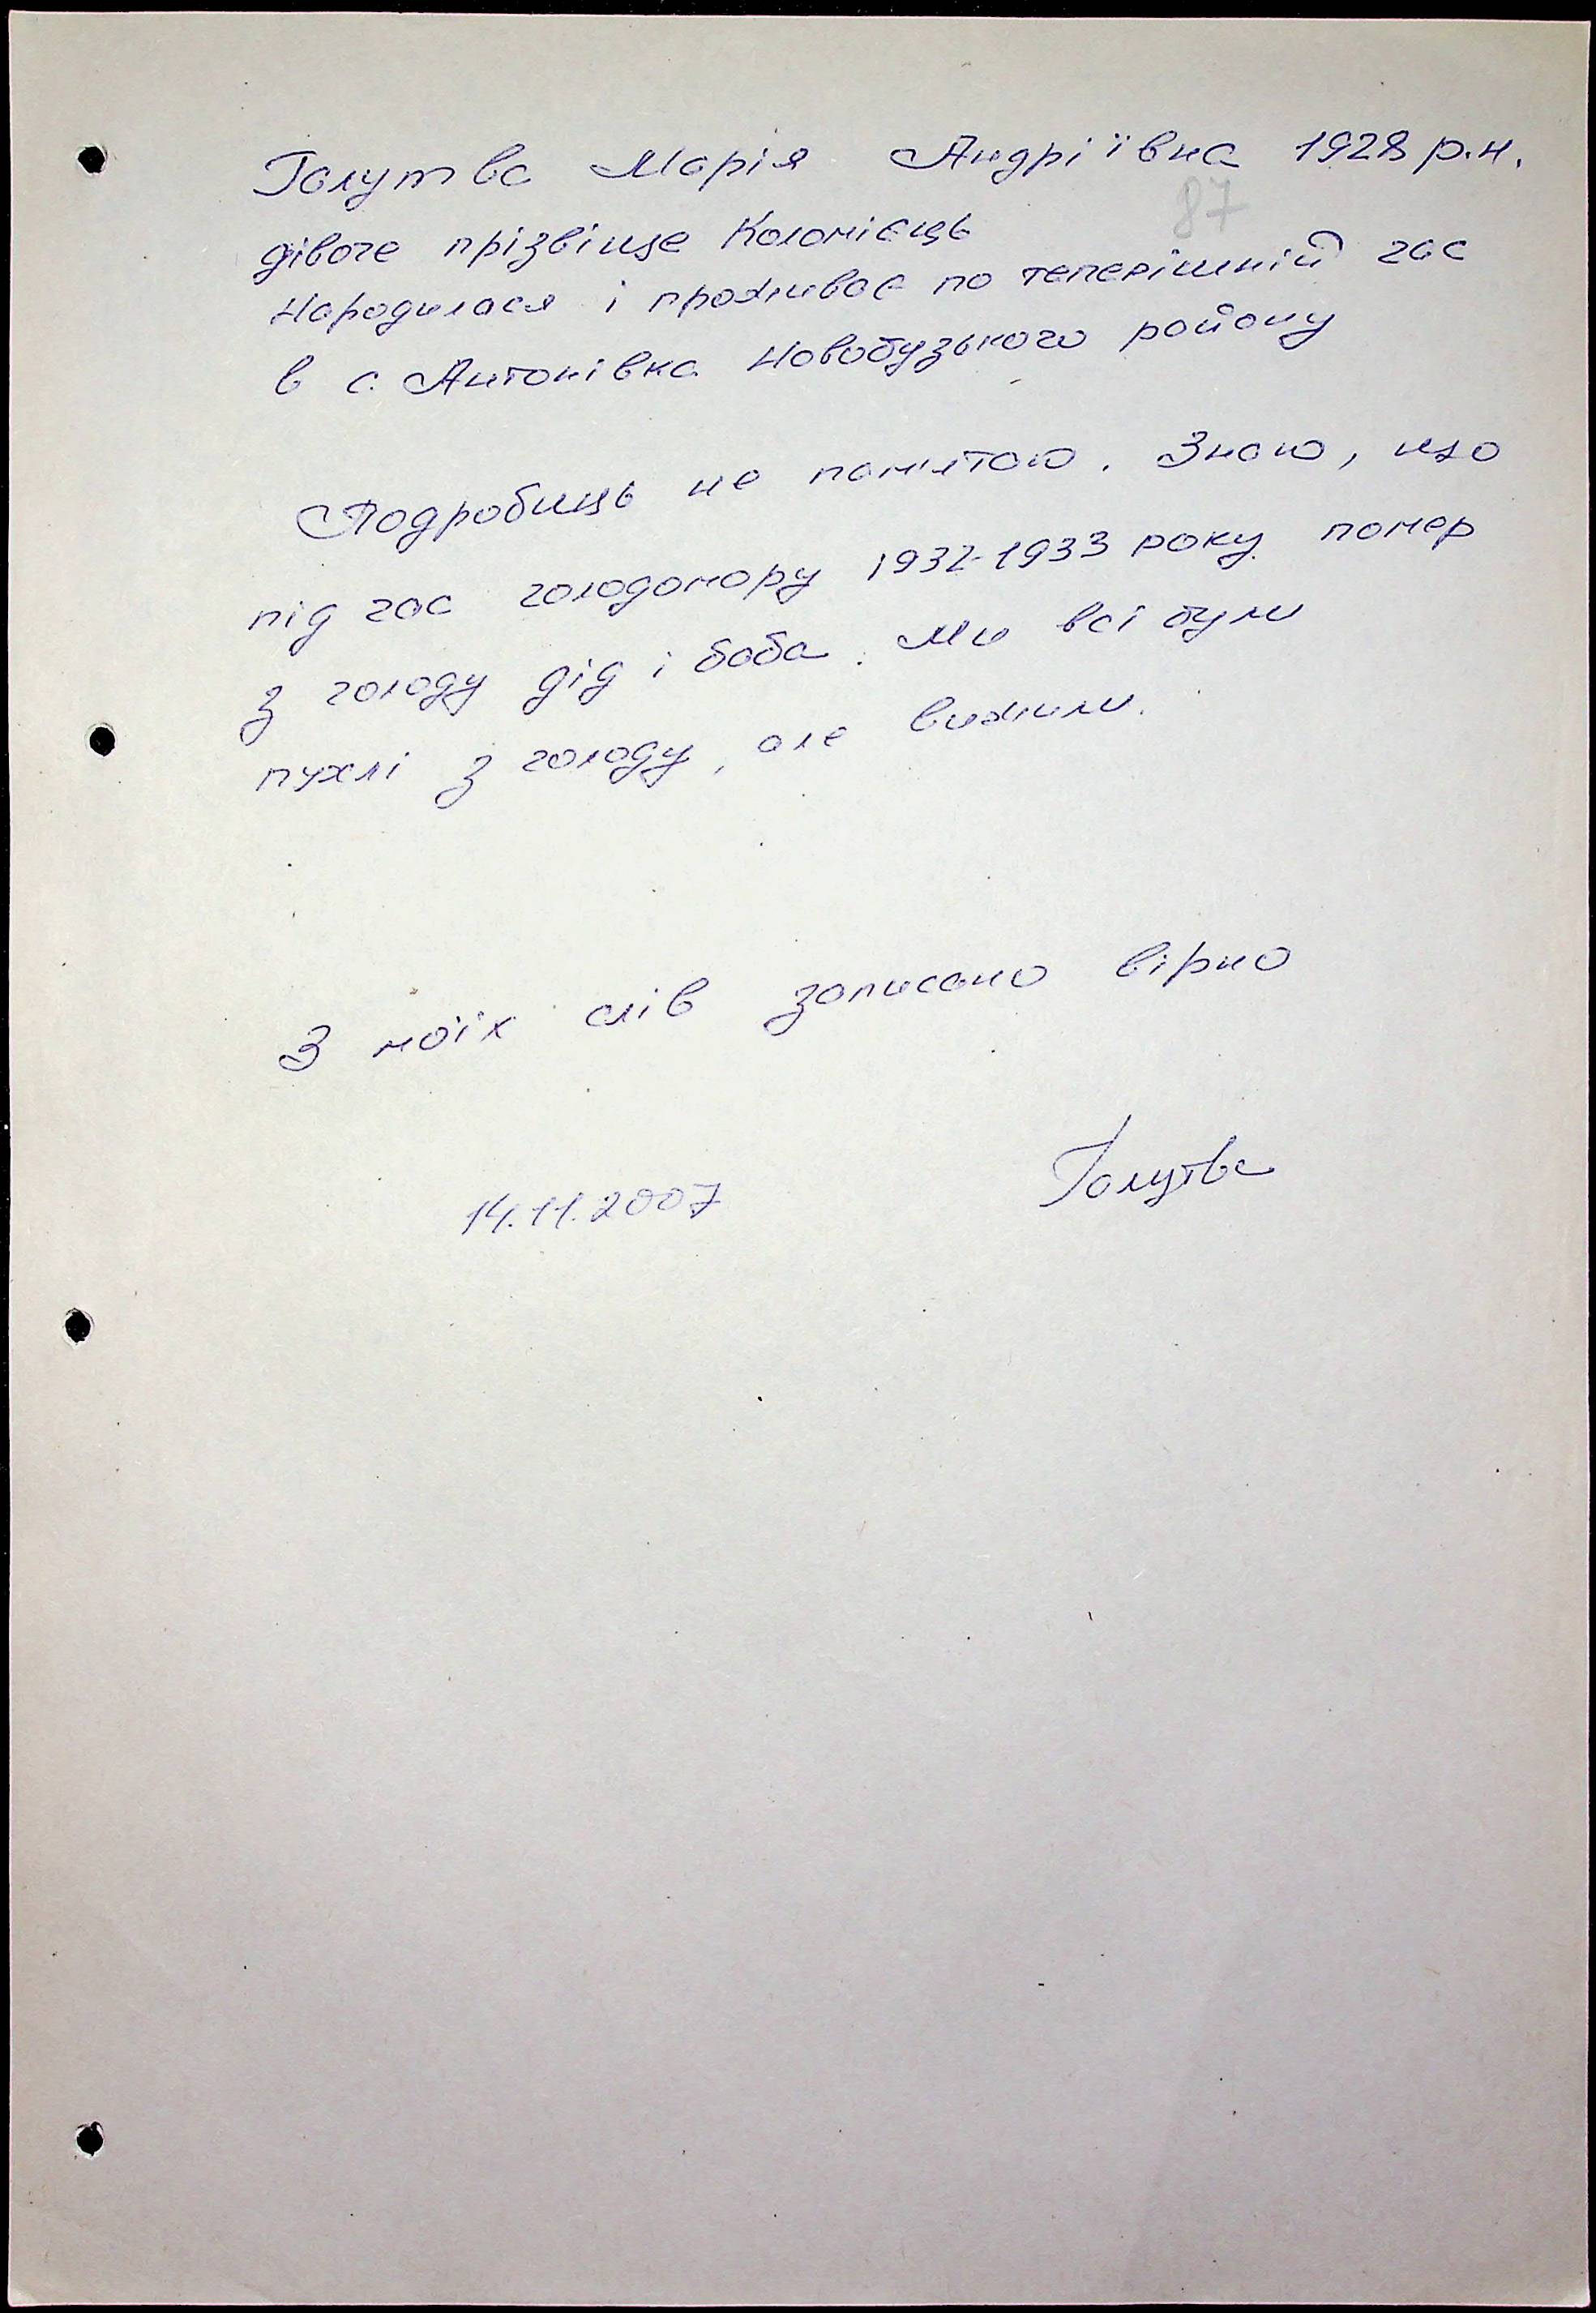 Голутва Марія Андріївна 1928 р.н.
87
дівоче прізвище Коломієць
Народилася і проживає по теперішній час
в с. Антонівка Новобузького району
Подробиць не пам'ятаю. Знаю, що
під час голодомору 1932-1933 року помер
з голоду дід і баба. Ми всі були
пухлі з голоду, але вижили.
З моїх слів записано вірно
14.11.2007 Голутва